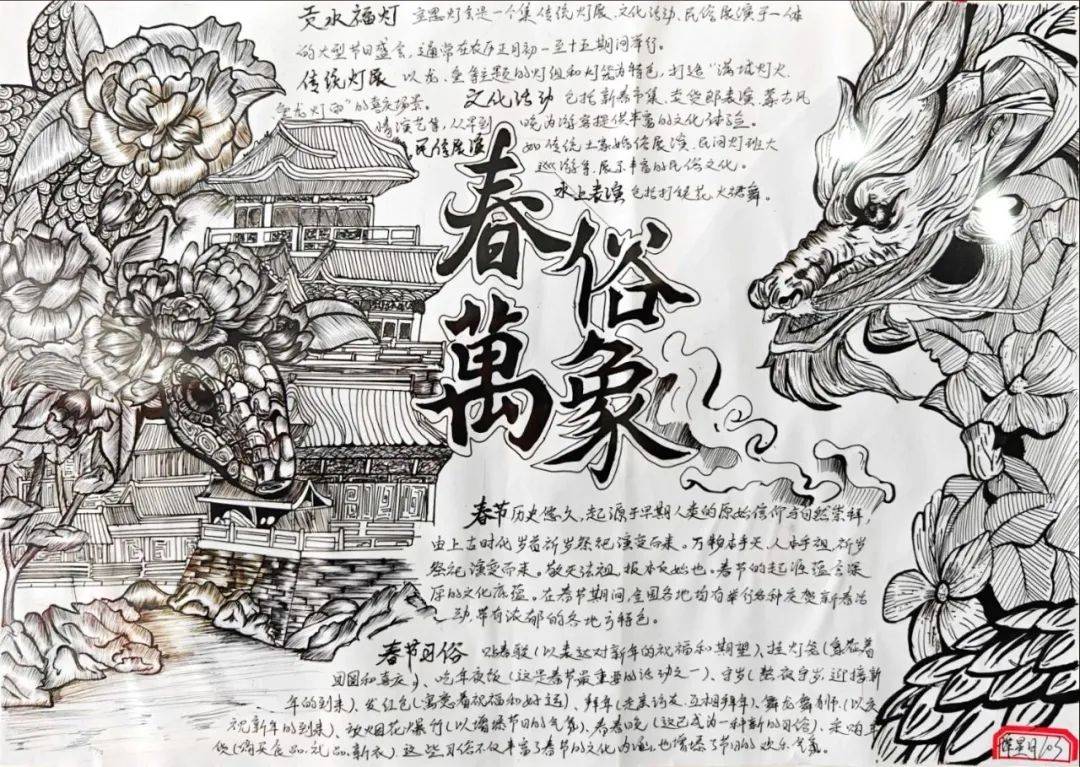 贡水福灯 宣恩灯会是一个集传统灯展、文化活动、民俗展演于一体
的大型节日盛会，通常在农历正月初一至十五期间举行。
传统灯展 以龙、鱼等主题的灯组和灯笼为特色，打造“满城灯火
鱼龙灯雨”的喜庆场景。 文化活动 包括新春市集、卖货郎表演、蒙古风
情演艺等，从早到晚为游客提供丰富的文化体验。
民俗展演 如传统土家婚俗展演、民间灯班大
巡游等，展示丰富的民俗文化。
水上表演 包括打铁花、火裙舞。
春俗
萬象
春节历史悠久，起源于早期人类的原始信仰与自然崇拜，
由上古时代岁首祈岁祭祀演变而来。万物本乎天，人本乎祖，祈岁
祭祀演变而来。敬天法祖，报本反始也。春节的起源蕴含深
厚的文化底蕴。在春节期间，全国各地均有举行各种庆贺新春活
动，带有浓郁的各地方特色。
春节习俗 贴春联（以表达对新年的祝福和期望）、挂灯笼（象征着
团圆和喜庆）、吃年夜饭（这是春节最重要的活动之一）、守岁（熬夜守岁，迎接新
年的到来）、发红包（寓意着祝福和好运）、拜年（走亲访友，互相拜年）、舞龙舞狮（以庆
祝新年的到来）、放烟花爆竹（以增添节日的气氛）、看春晚（这已成为一种新的习俗）、
货（购买食品、礼品、新衣）这些习俗不仅丰富了春节的文化内涵，也增添了节日的欢乐气氛。
星月105